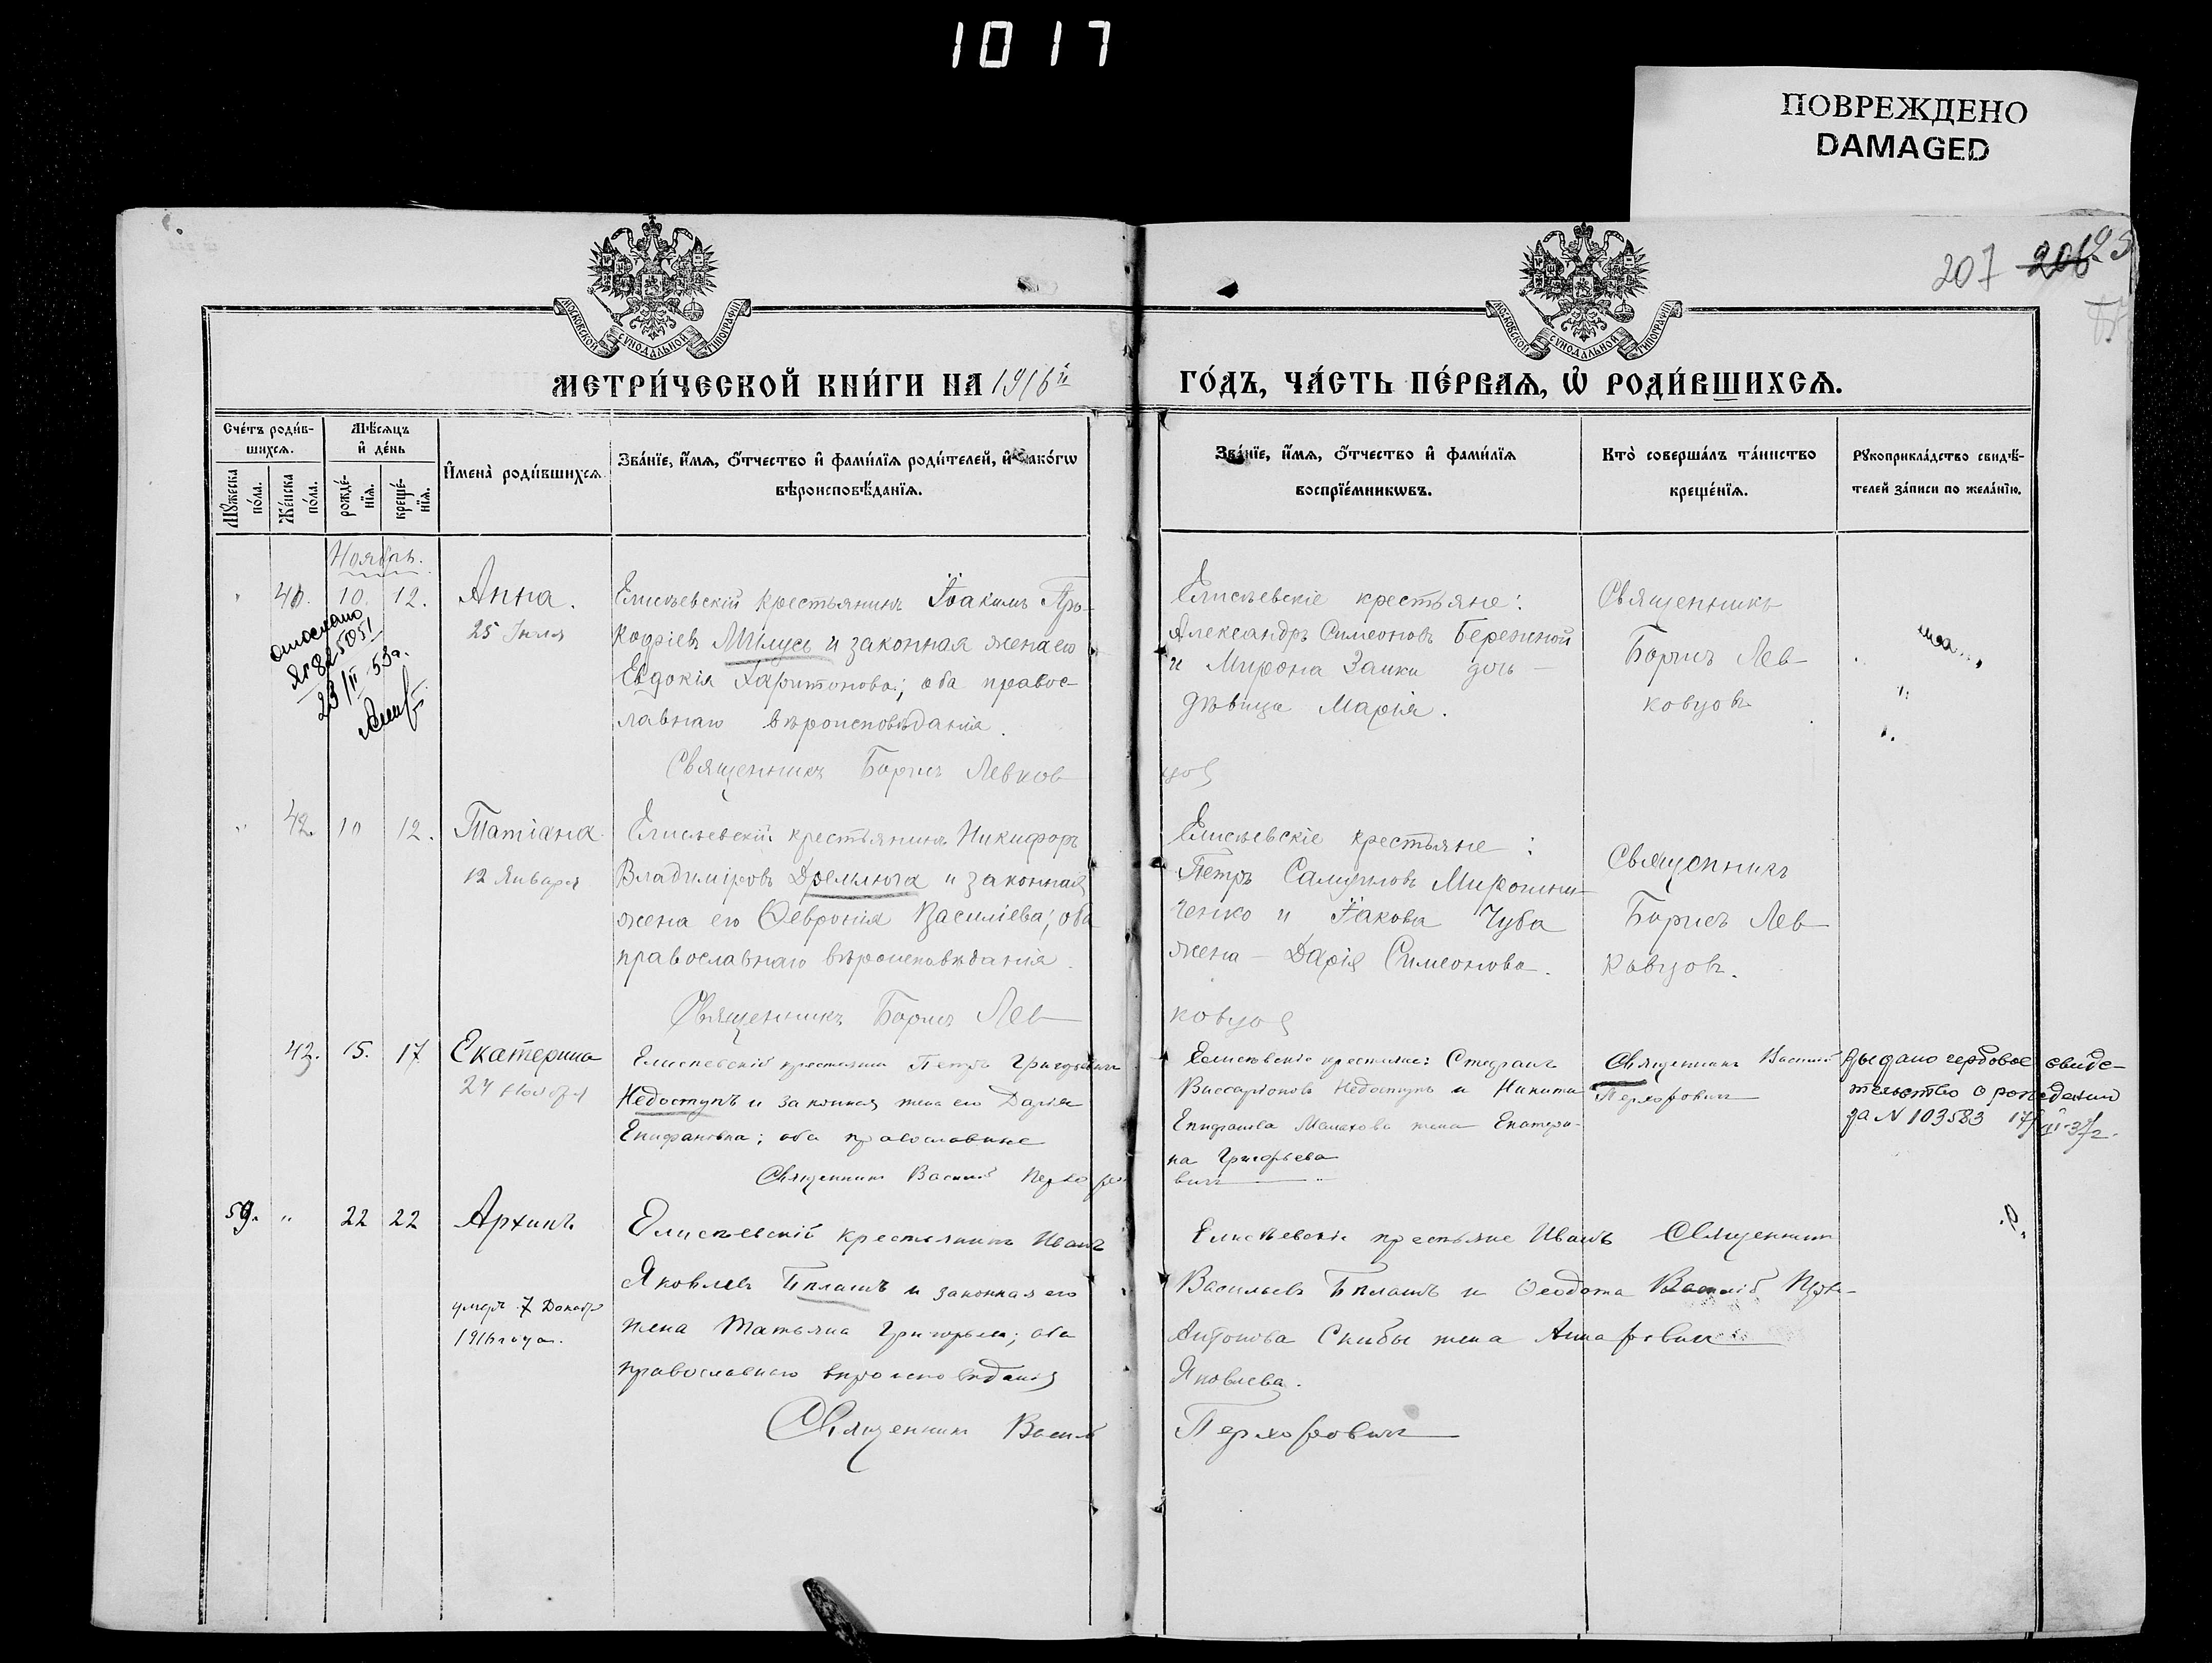 1017
ПОВРЕЖДЕНО
DAMAGED
207 206
МОСКОВСКОЙ СУНОДАЛЬНОЙ ТИПОГРАФІИ
МОСКОВСКОЙ СУНОДАЛЬНОЙ ТИПОГРАФІИ
МЕТРИ́ЧЕСКОЙ КНИ́ГИ НА 1916й
ГО́ДЪ, ЧА́СТЬ ПЕ́РВАѦ, Ѡ҆ РОДИ́ВШИХСѦ.
Сче́тъ роди́в-
шихсѧ.
Мꙋ́жеска по́ла.
Же́нска по́ла.
Мѣ́сѧцъ
и҆ де́нь
рожде́-
нїѧ.
креще́-
нїѧ.
И҆мена̀ роди́вшихсѧ
Зва́нїе, и҆́мѧ, ѻ҆́тчество и҆ фами́лїѧ роди́телей, и҆ како́гѡ
вѣроисповѣ́данїѧ.
Зва́нїе, и҆́мѧ, ѻ҆́тчество и҆ фами́лїѧ
воспрїе́мникѡвъ.
Кто̀ соверша́лъ та́инство
креще́нїѧ.
Рꙋкоприкла́дство свидѣ́-
телей за́писи по жела́нїю.
Ноябрь.
" 41. 10. 12. Анна.
25 Іюля
отослано
№ 825051
23/II 53г.
Елисѣевскій крестьянинъ Іоакимъ Про-
кофіевъ Милусь и законная жена его
Евдокія Харитонова; оба правос-
лавнаго вѣроисповѣданія.
Священникъ Борисъ Левков
цов
Елисѣевскіе крестьяне:
Александръ Симеоновъ Бережной
и Мирона Заики дочь –
дѣвица Марія.
Священникъ
Борисъ Лев-
ковцовъ
" 42. 10 12. Татіана
12 Января
Елисѣевскій крестьянинъ Никифоръ
Владиміровъ Дремлюга и законная
жена его Февронія Василіева; оба
православнаго вѣроисповѣданія.
Священникъ Борисъ Лев
ковцов
Елисѣевскіе крестьяне:
Петръ Самуиловъ Мирошни-
ченко и Іакова Чуба
жена – Дарія Симеонова.
Священникъ
Борисъ Лев-
ковцовъ.
43. 15. 17 Екатерина
24 Ноября
Елисѣевскій крестьянин Петръ Григорьевич
Недоступъ и законная жена его Дарія
Епифановна; оба православные
Священник Василій Перхоро
вич
Елисѣевскіе крестьяне: Стефанъ
Виссаріоновъ Недоступъ и Никита
Епифанова Малахова жена Екатери-
на Григорьева
Священник Василій
Перхорович
Выдано гербовое свиде-
тельство о рождении
за N 103583
59. " 22 22 Архипъ
умеръ 7 Декабр
1916 года.
Елисѣевскій крестьянинъ Иванъ
Яковлевъ Бѣлашъ и законная его
жена Татьяна Григорьева; оба
православнаго вѣроисповѣданія
Священник Василій
Перхорович
Елисѣевскіе крестьяне Иванъ
Васильевъ Бѣлашъ и Феодота
Антонова Скибы жена Анна
Яковлева.
Священник
Василій Перхо-
рович